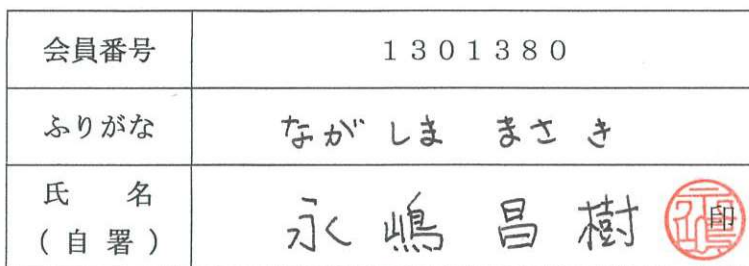 会員番号 1301380
ふりがな ながしま まさき
氏 名 永嶋 昌樹 印
(自署)